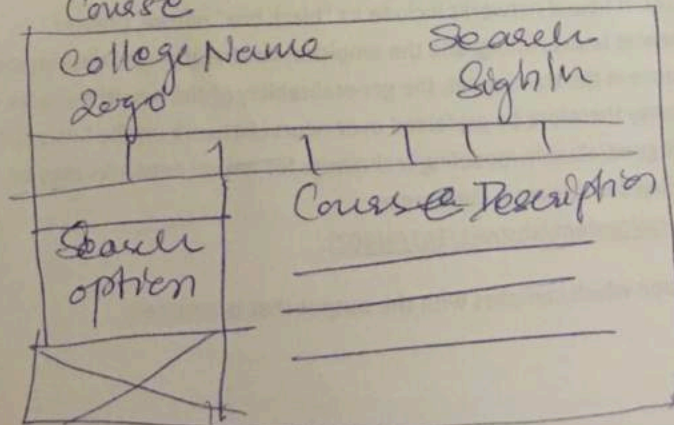 Course
College Name
Logo
Search
Sign In
Search
option
Course Description